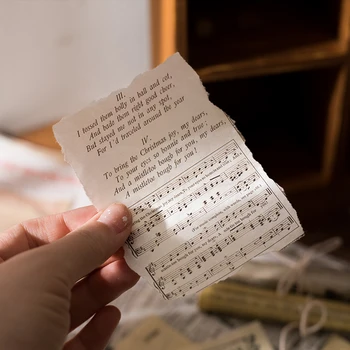 III.
I tossed them holly in hall and cot,
And bade them right good cheer,
But stayed me not in any spot,
For I'd traveled around the year
IV.
To bring the Christmas joy, my dears,
To your eyes so bonnie and true;
And a mistletoe bough for you, my dears,
A mistletoe bough for you!
mistletoe bough for you, my dears,